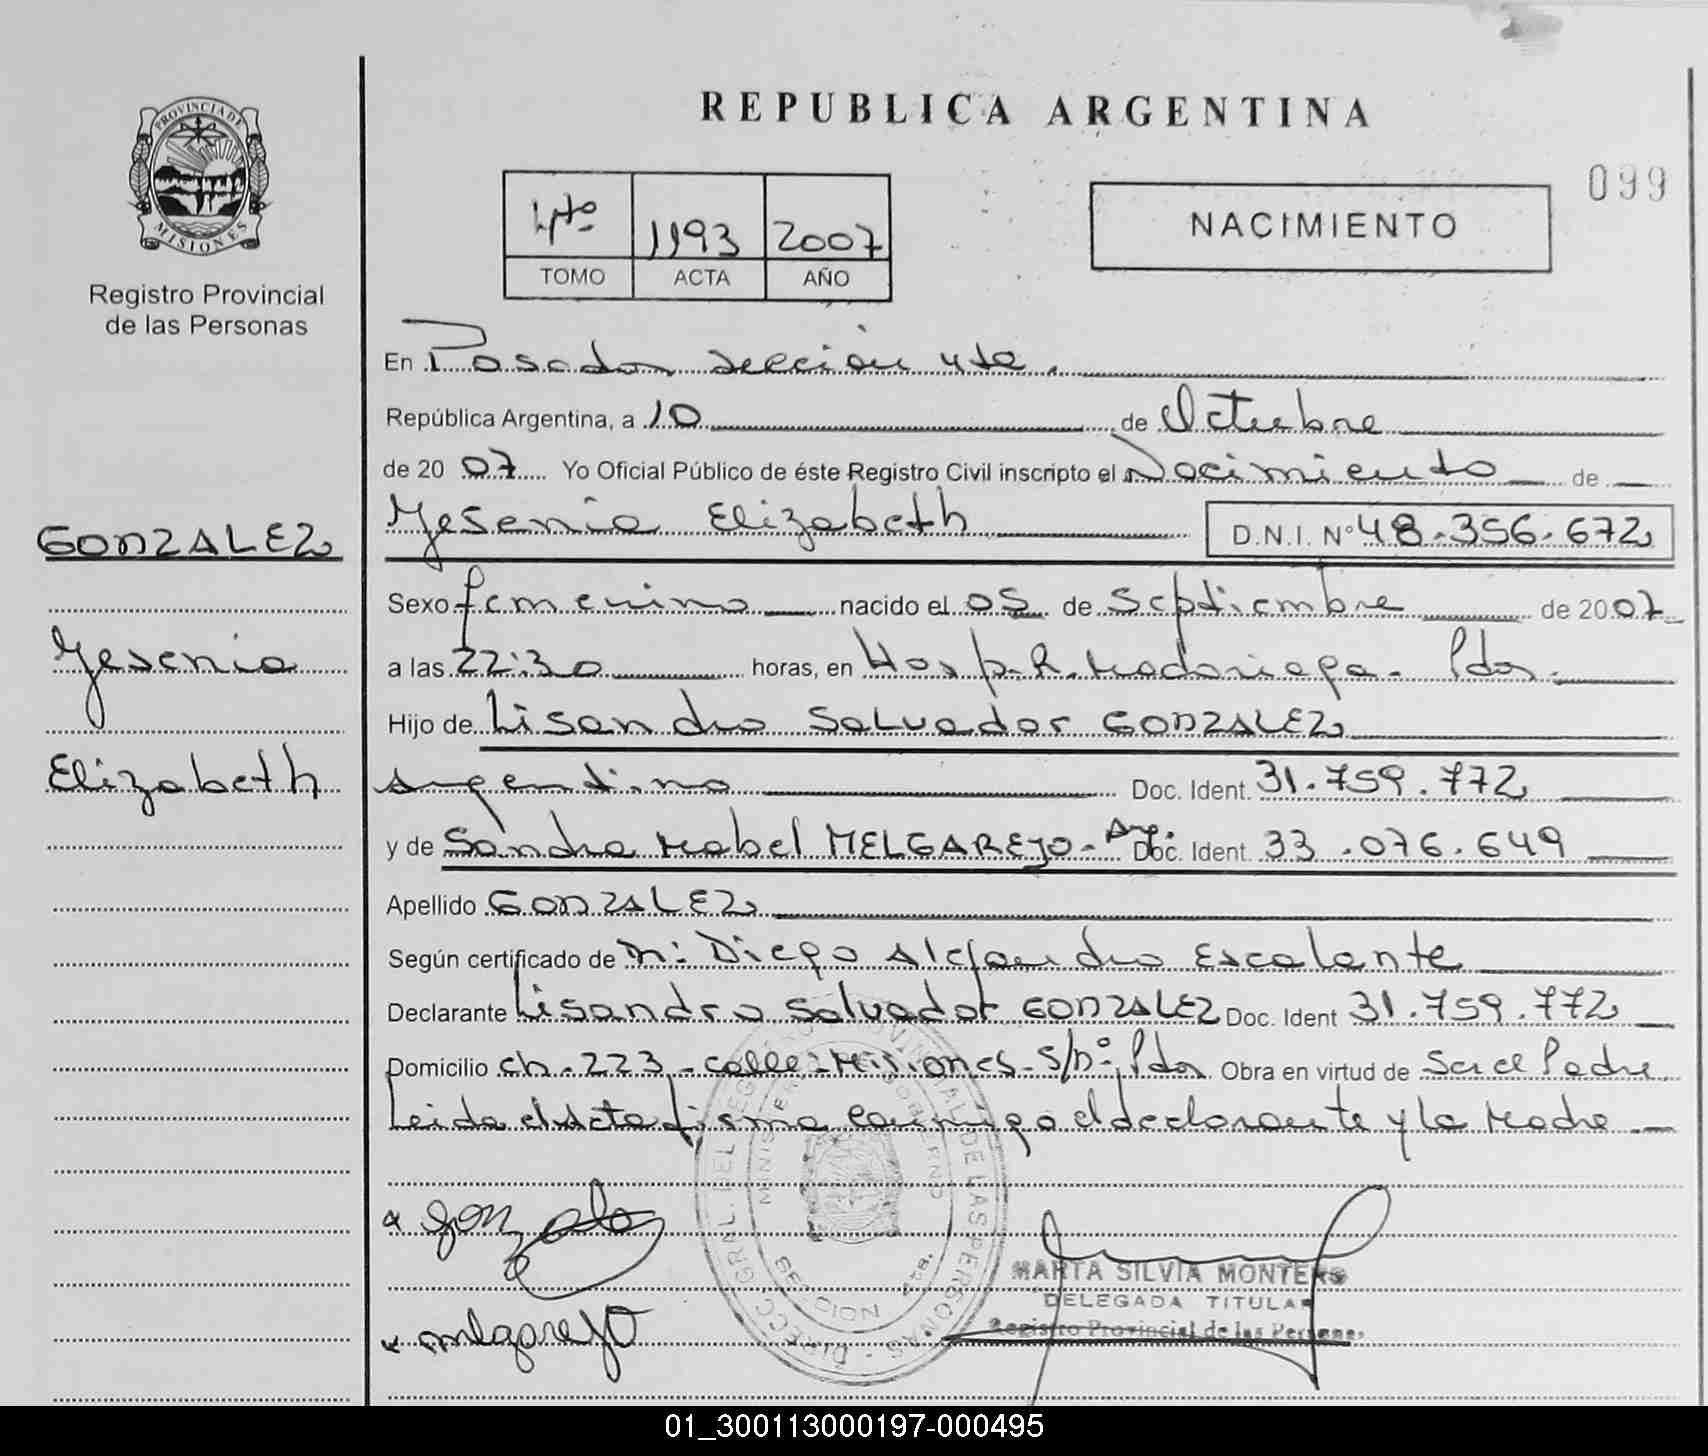 REPUBLICA ARGENTINA
099
PROVINCIA DE
MISIONES
Registro Provincial
de las Personas
4to 1193 2007
TOMO ACTA AÑO
NACIMIENTO
En Posadas sección 4ta.
República Argentina, a 10 de Octubre
de 2007 Yo Oficial Público de éste Registro Civil inscripto el Nacimiento de
Yesenia Elizabeth D.N.I. Nº 48.356.672
GONZALEZ
Yesenia
Elizabeth
Sexo femenino nacido el 05 de Septiembre de 2007
a las 22:30 horas, en Hosp. R. Madariaga. Pdas.
Hijo de Lisandro Salvador GONZALEZ
Argentino Doc. Ident. 31.759.772
y de Sandra Mabel MELGAREJO - Arg. Doc. Ident. 33.076.649
Apellido GONZALEZ
Según certificado de Diego Alejandro Escalante
Declarante Lisandro Salvador GONZALEZ Doc. Ident 31.759.772
Domicilio ch. 223 - calle Misiones - S/nº, Pdas Obra en virtud de Ser el Padre
Leida el Acta firma conmigo el declarante y la Madre
Gonzalez
Melgarejo
DIRECC. GRAL. DEL REGISTRO PROVINCIAL DE LAS PERSONAS
SECCION 4ta.
MARTA SILVIA MONTERO
DELEGADA TITULAR
Registro Provincial de las Personas
01_300113000197-000495